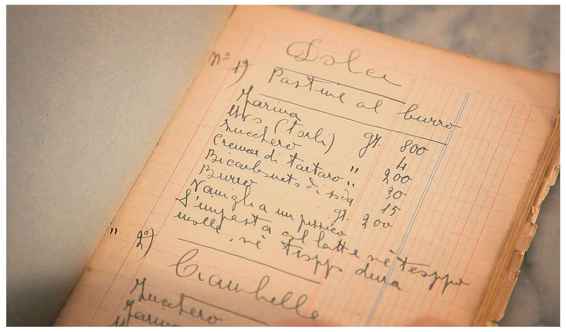 Dolci
Nº 1º) Pastine al burro
Farina gr. 800
(torli) 4
Zucchero " 200
Cremor di tartaro " 30
Bicarbonato di soda 15
Burro gr. 200
Vaniglia un pizzico
S'impasta col latte nè troppo
molle, nè troppo dura
" 2º) Ciambelle
Zucchero
Farina